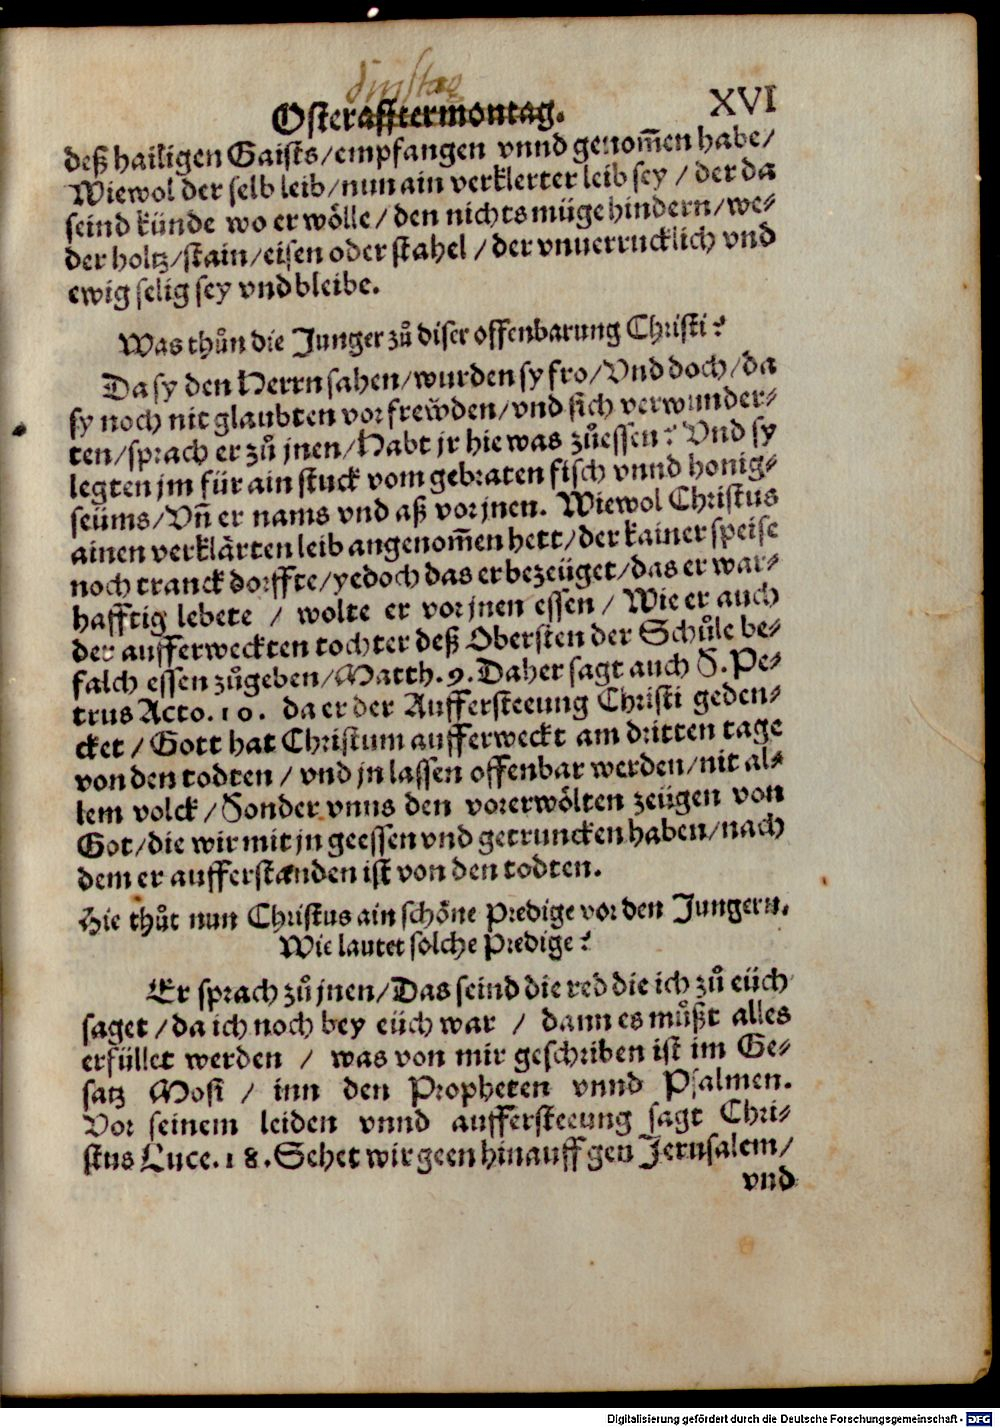 dinstag
Osterafftermontag. XVI
deß hailigen Gaists/empfangen vnnd genom̄en habe/
Wiewol der selb leib/nun ain verklerter leib sey / der da
seind künde wo er wölle / den nichts müge hindern/we⸗
der holtz/stain/eisen oder stahel / der vnuerrucklich vnd
ewig selig sey vnd bleibe.
Was thůn die Junger zů diser offenbarung Christi?
Da sy den Herrn sahen/wurden sy fro/Vnd doch/da
sy noch nit glaubten vor frewden/vnd sich verwunder⸗
ten/sprach er zů jnen/Habt jr hie was zůessen? Vnd sy
legten jm für ain stuck vom gebraten fisch vnnd honig⸗
seüms/Vn̄ er nams vnd aß vor jnen. Wiewol Christus
ainen verklärten leib angenom̄en hett/der kainer speise
noch tranck dorffte/yedoch das er bezeüget/das er war⸗
hafftig lebete / wolte er vor jnen essen / Wie er auch
der aufferweckten tochter deß Obersten der Schůle be⸗
falch essen zůgeben/Matth. 9. Daher sagt auch S. Pe⸗
trus Acto. 10. da er der Aufferstеeung Christi geden⸗
cket / Gott hat Christum aufferweckt am dritten tage
von den todten / vnd jn lassen offenbar werden/nit al⸗
lem volck / Sonder vnns den vorerwölten zeügen von
Got/die wir mit jn geessen vnd getruncken haben/nach
dem er aufferstanden ist von den todten.
Hie thůt nun Christus ain schöne Predige vor den Jungern.
Wie lautet solche Predige?
Er sprach zů jnen/Das seind die red die ich zů eüch
saget / da ich noch bey eüch war / dann es můßt alles
erfüllet werden / was von mir geschriben ist im Ge⸗
satz Mosi / inn den Propheten vnnd Psalmen.
Vor seinem leiden vnnd aufferstеeung sagt Chri⸗
stus Luce. 18. Sehet wir geen hinauff gen Jerusalem/
vnd
Digitalisierung gefördert durch die Deutsche Forschungsgemeinschaft - DFG